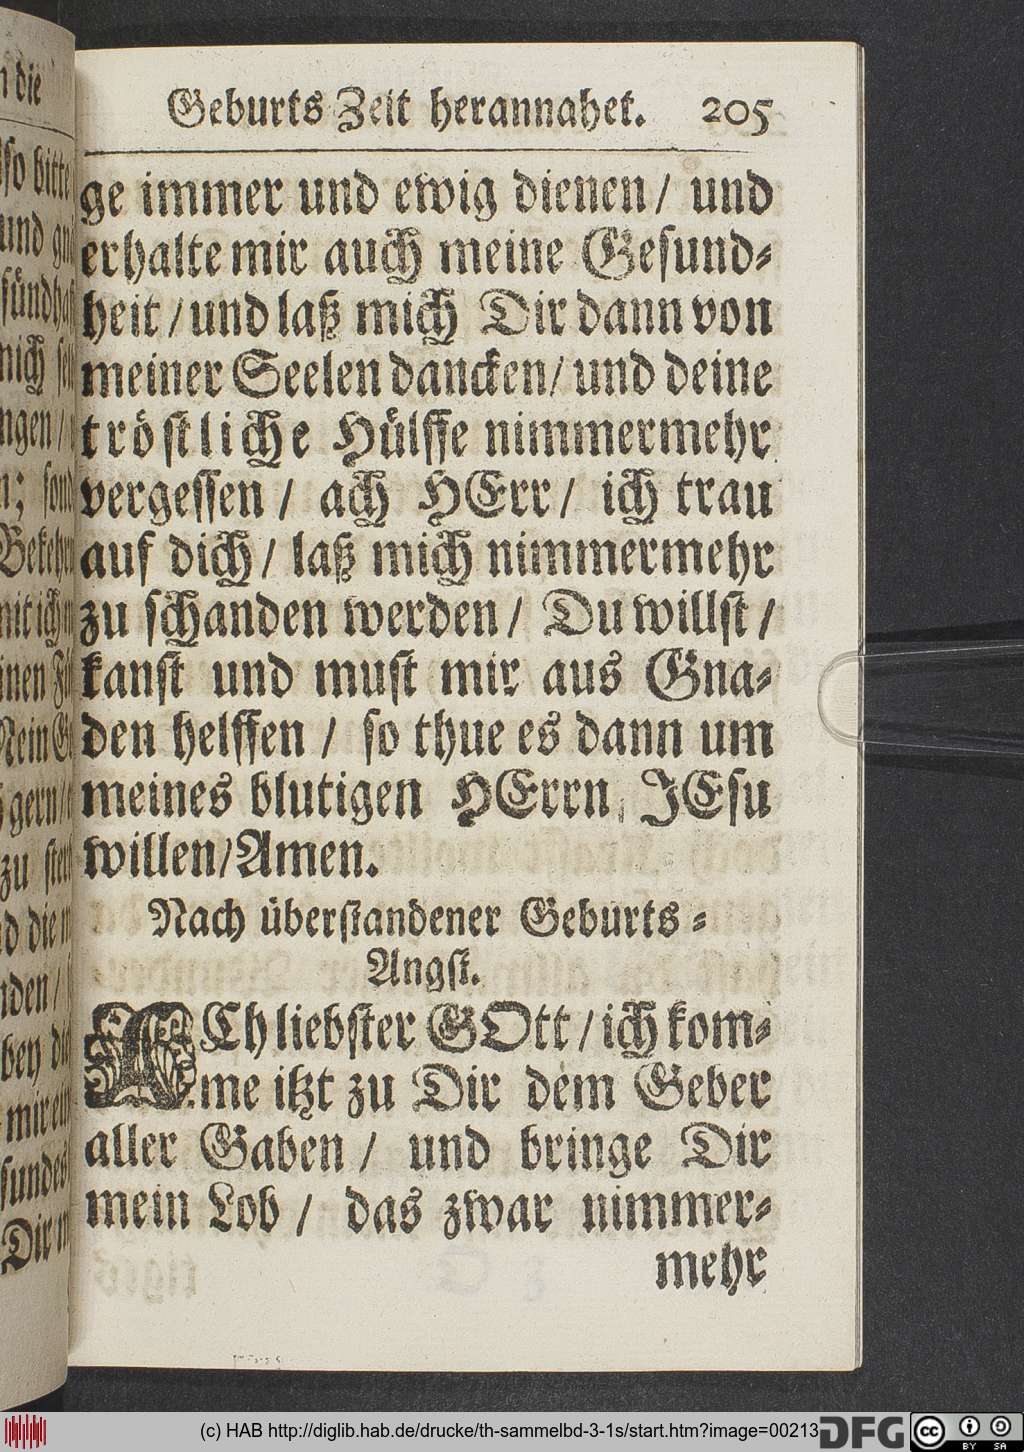 Geburts Zeit herannahet. 205
ge immer und ewig dienen / und
erhalte mir auch meine Gesund-
heit / und laß mich Dir dann von
meiner Seelen dancken / und deine
tröstliche Hülffe nimmermehr
vergessen / ach HErr / ich trau
auf dich / laß mich nimmermehr
zu schanden werden / Du willst /
kanst und must mir aus Gna-
den helffen / so thue es dann um
meines blutigen HErrn JEsu
willen / Amen.
Nach überstandener Geburts-
Angst.
ACh liebster GOtt / ich kom-
me itzt zu Dir dem Geber
aller Gaben / und bringe Dir
mein Lob / das zwar nimmer-
mehr
(c) HAB http://diglib.hab.de/drucke/th-sammelbd-3-1s/start.htm?image=00213
DFG
cc
BY SA